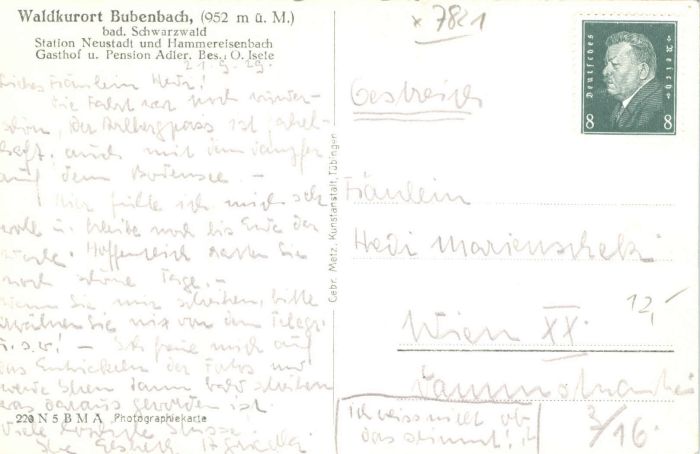 Waldkurort Bubenbach, (952 m ü. M.)
bad. Schwarzwald
Station Neustadt und Hammereisenbach
Gasthof u. Pension Adler, Bes. O. Isele
21.9.29.
Liebes Fräulein Hedi!
Die Fahrt war noch wunder-
schön, der Arlbergpass ist
auch mit dem Dampfer
auf dem Bodensee. -
Hier fühle ich mich sehr
wohl u. bleibe noch bis Ende der
Woche. Hoffentlich Sie
noch schöne Tage. -
Wenn Sie mir schreiben, bitte
erwähnen Sie nix von dem Telegr.
u.s.w.! - Ich freue mich auf
das Entwickeln der und
werde Ihnen dann bald schreiben
was daraus geworden ist.
Viele herzliche Grüsse
Ihre
220 N 5 B M A Photographiekarte
Gebr. Metz, Kunstanstalt, Tübingen
x 7821
Deutsches Reich
8 8
Oestreich
Fräulein
Hedi Marienschek
Wien XX.
12,-
2/16.
Ich weiss nicht ob
das stimmt!